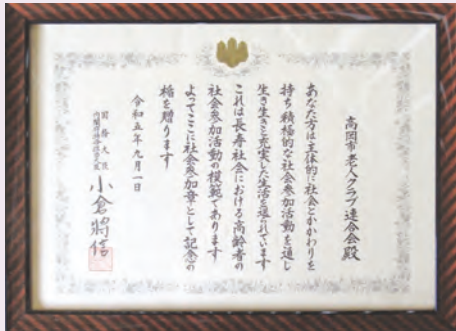 高岡市老人クラブ連合会殿
あなた方は主体的に社会とかかわりを
持ち積極的な社会参加活動を通し
生き生きと充実した生活を送られています
これは長寿社会における高齢者の
社会参加活動の模範であります
よってここに社会参加章として記念の
楯を贈ります
令和五年九月一日
国務大臣
小倉將信